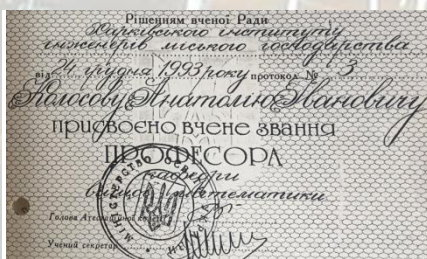 Рішенням вченої Ради
Харківського інституту
інженерів міського господарства
від 24 грудня 1993 року протокол № 3
Колосову Анатолію Івановичу
присвоєно вчене звання
ПРОФЕСОРА
кафедри
вищої математики
Голова Атестаційної колегії
Учений секретар